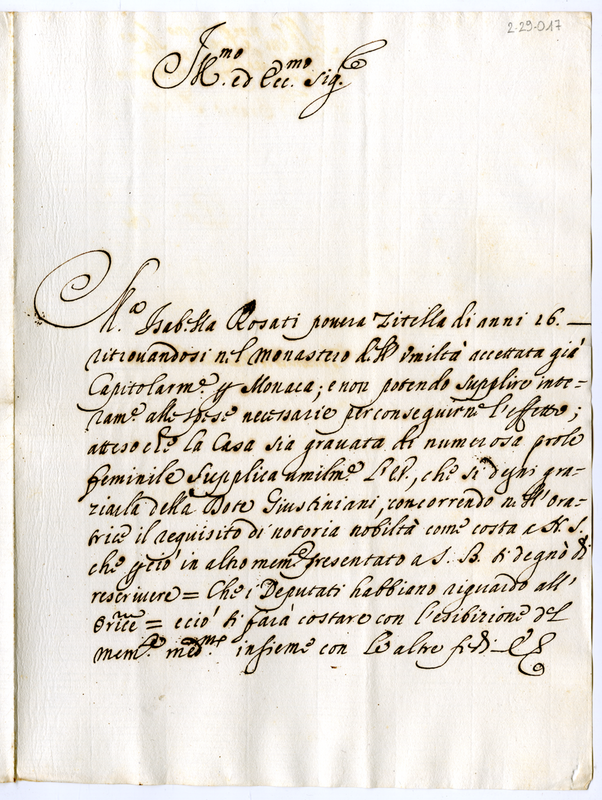 2-29-017
Ill.mo ed Ecc.mo Sig.re
M.a Isabella Rosati povera Zitella di anni 26.
ritrovandosi nel Monastero dell' Vmiltà accettata già
Capitolarm.e p Monaca; e non potendo supplire inte=
ram.e alle spese necessarie per conseguirne l'effetto;
atteso che la Casa sia gravata di numerosa prole
feminile supplica umilm.e l'E.V., che si degni gra=
ziarla della Dote Giustiniani, concorrendo nell' Ora=
trice il requisito di notoria nobiltà come costa a N. S.
che p ciò in altro mem.le presentato a S. B. si degnò di
rescrivere = Che i Deputati habbiano riguardo all'
Or.rice = e ciò si farà costare con l'esibizione del
mem.le med.mo insieme con le altre fedi